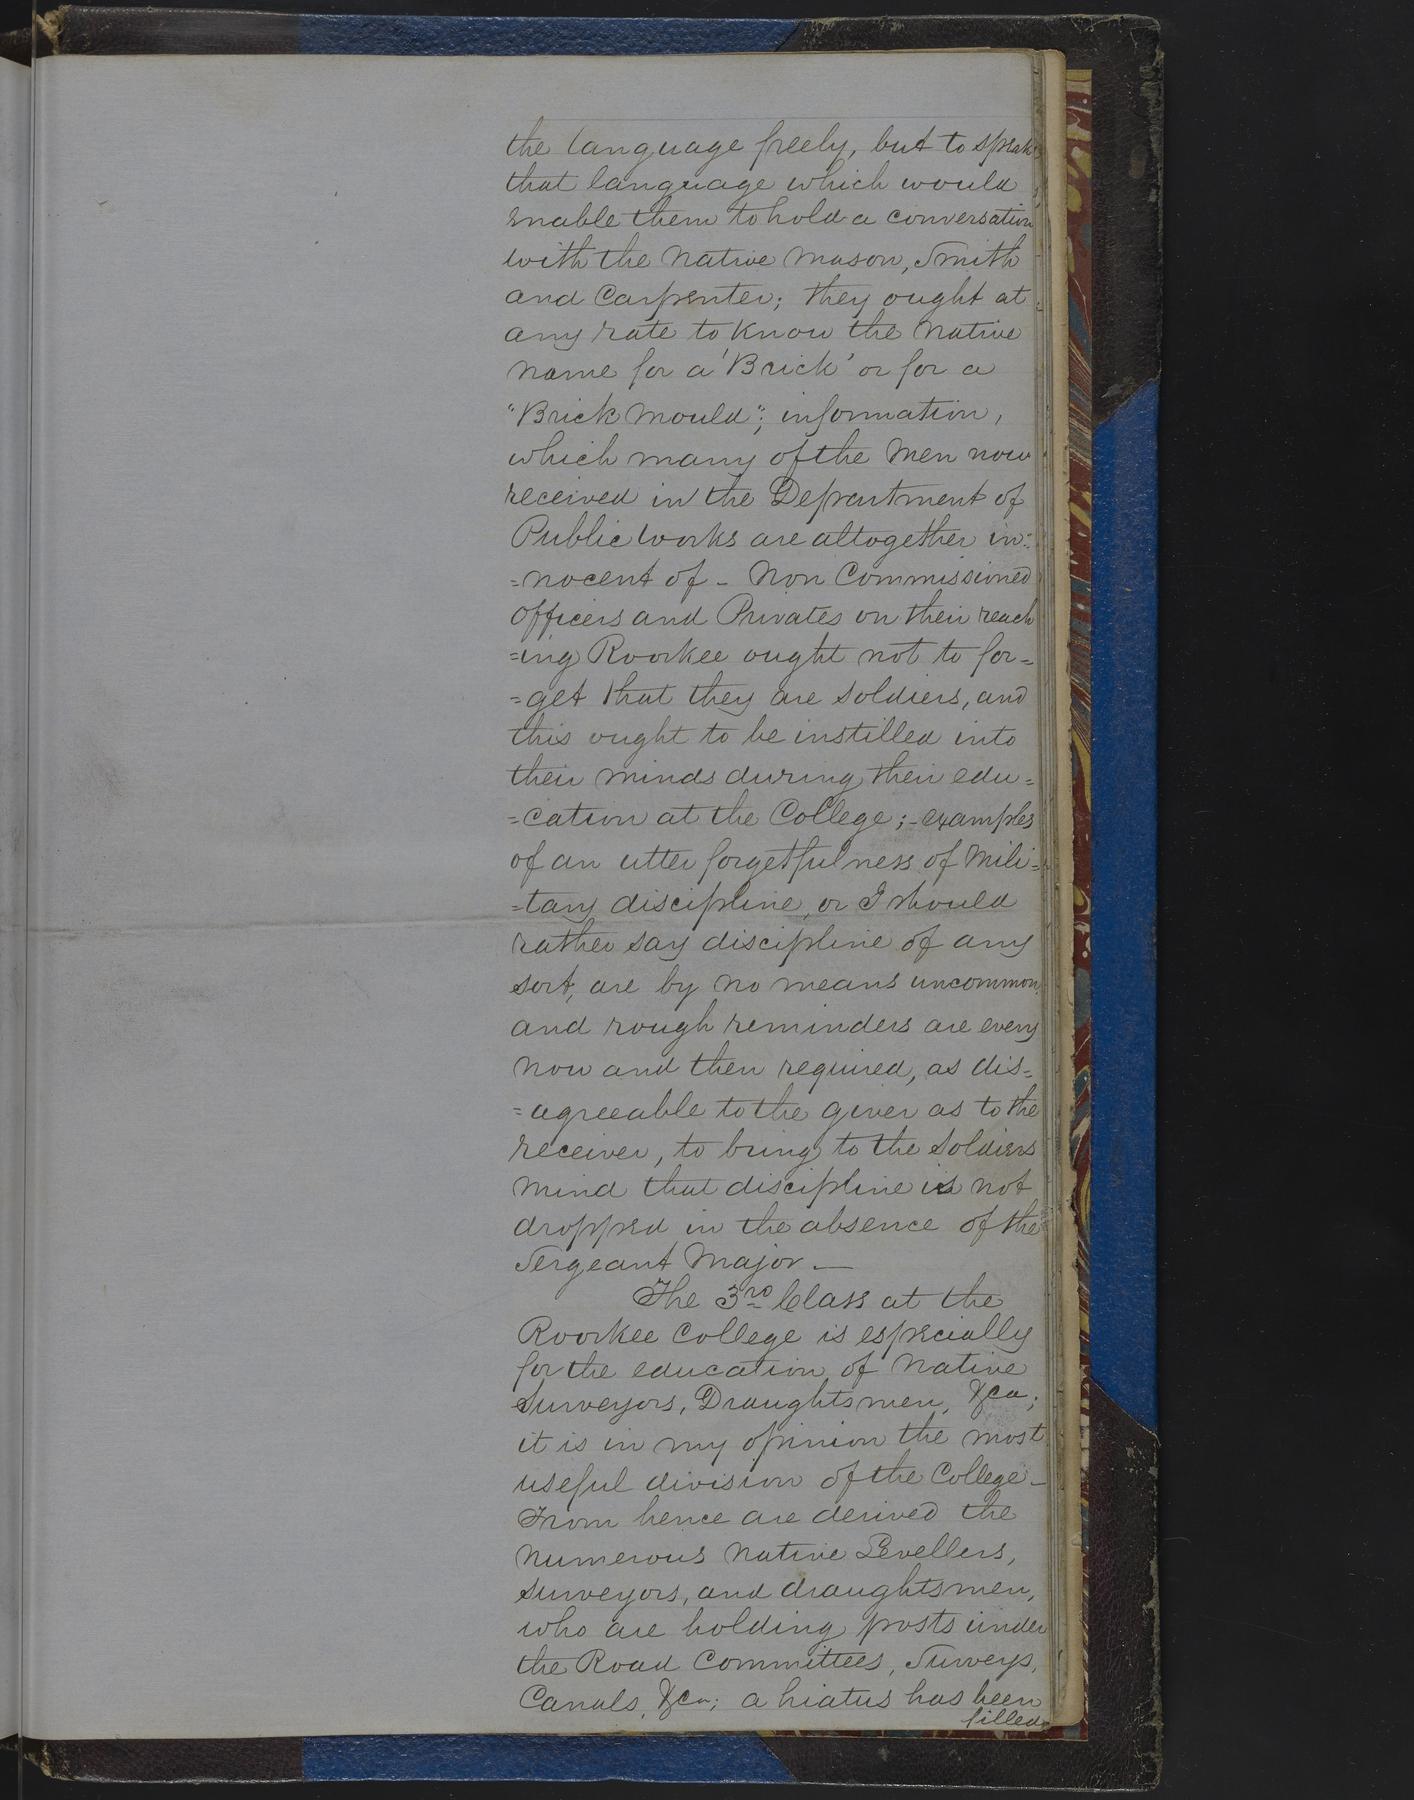 the language freely, but to speak
that language which would
enable them to hold a conversation
with the Native Mason, Smith
and Carpenter; they ought at
any rate to know the Native
name for a 'Brick' or for a
"Brick Mould"; information,
which many of the Men now
received in the Department of
Public Works are altogether in=
=nocent of - Non Commissioned
Officers and Privates on their reach
=ing Roorkee ought not to for=
=get that they are Soldiers, and
this ought to be instilled into
their minds during their edu=
=cation at the College; - examples
of an utter forgetfulness of Mili=
=tary discipline, or I should
rather say discipline of any
sort, are by no means uncommon,
and rough reminders are every
now and then required, as dis=
=agreeable to the giver as to the
receiver, to bring to the Soldiers
mind that discipline is not
dropped in the absence of the
Sergeant Major. —
The 3rd Class at the
Roorkee College is especially
for the education of Native
Surveyors, Draughtsmen, &ca;
it is in my opinion the most
useful division of the College -
From hence are derived the
numerous Native Levellers,
Surveyors, and draughtsmen,
who are holding posts under
the Road Committees, Surveys,
Canals, &ca; a hiatus has been
filled